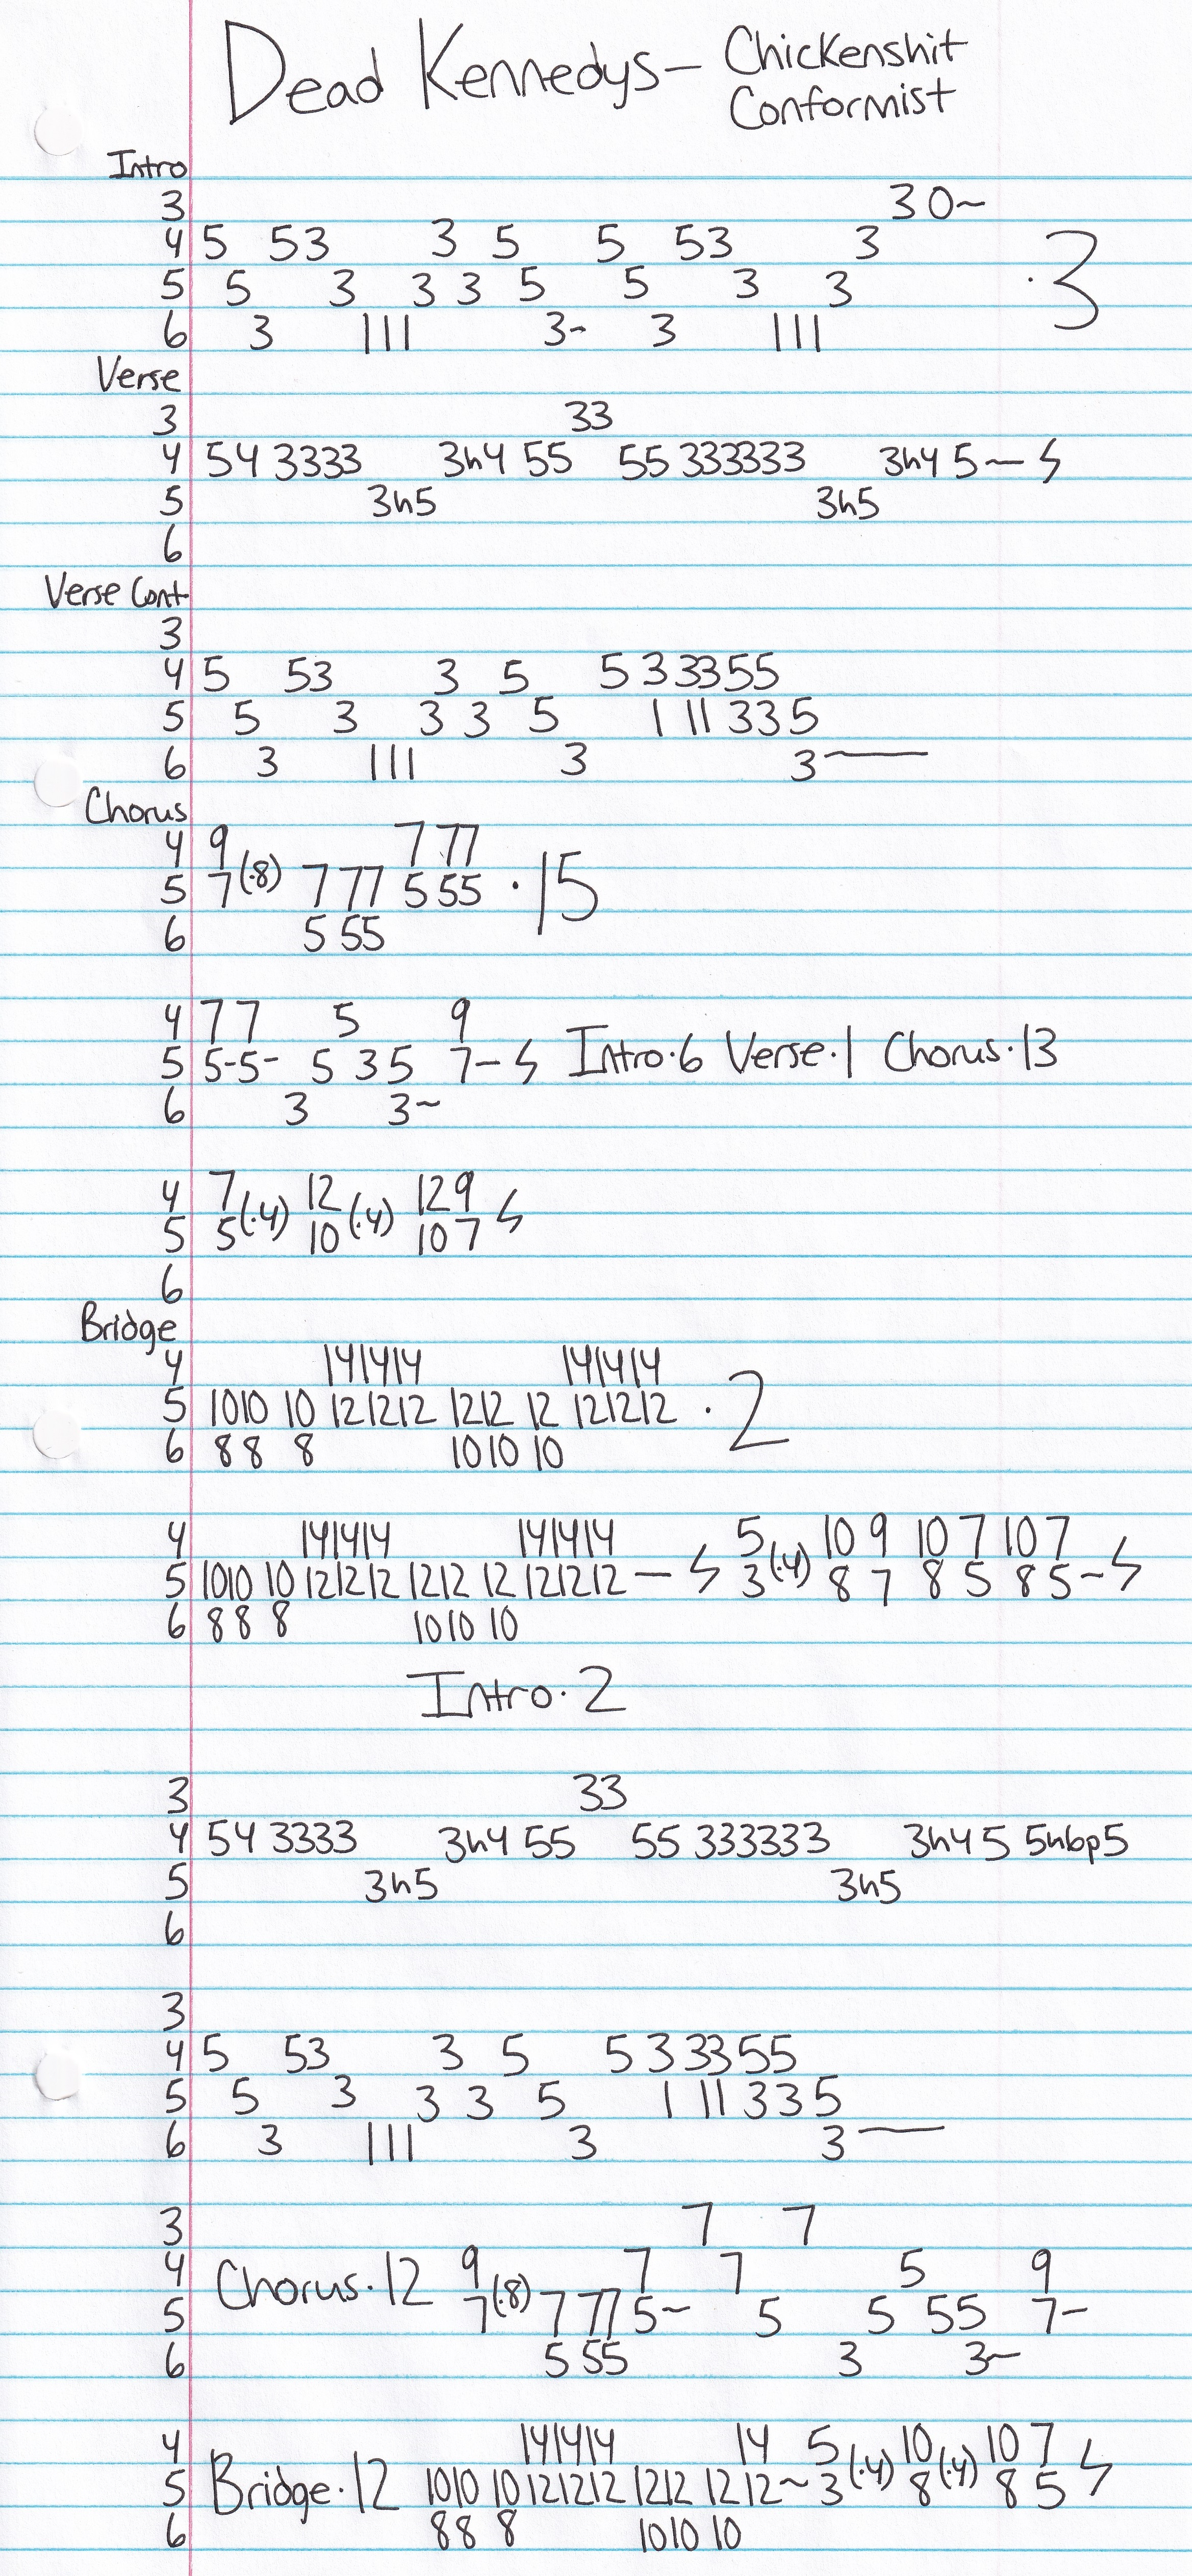 Dead Kennedys - Chickenshit
Conformist
Intro
3 3 0~
4 5 5 3 3 5 5 5 3 3
5 5 3 3 3 5 5 3 3 ·3
6 3 1 1 1 3- 3 1 1 1
Verse
3 33
4 54 3333 3h4 55 55 333333 3h4 5— ϟ
5 3h5 3h5
6
Verse Cont
3
4 5 53 3 5 5 3 33 55
5 5 3 3 3 5 1 11 33 5
6 3 111 3 3—
Chorus
4 9 7 77
5 7 (·8) 7 77 5 55 ·15
6 5 55
4 7 7 5 9
5 5-5- 5 3 5 7- ϟ Intro·6 Verse·1 Chorus·13
6 3 3~
4 7 (·4) 12 (·4) 12 9 ϟ
5 5 10 10 7
6
Bridge
4 141414 141414
5 1010 10 121212 1212 12 121212 ·2
6 88 8 1010 10
4 141414 141414 5 10 9 10 7 10 7
5 1010 10 121212 1212 12 121212 — ϟ 3 (·4) 8 7 8 5 8 5~ ϟ
6 88 8 1010 10
Intro·2
3 33
4 54 3333 3h4 55 55 333333 3h4 5 5h6p5
5 3h5 3h5
6
3
4 5 53 3 5 5 3 33 55
5 5 3 3 3 5 1 11 33 5
6 3 111 3 3—
3 7 7
4 Chorus·12 9 7 7 5 9
5 7 (·8) 7 77 5~ 5 5 55 7-
6 5 55 3 3~
4 141414 14 5 10 10 7
5 Bridge·12 1010 10 121212 1212 12 12~ 3 (·4) 8 (·4) 8 5 ϟ
6 88 8 1010 10